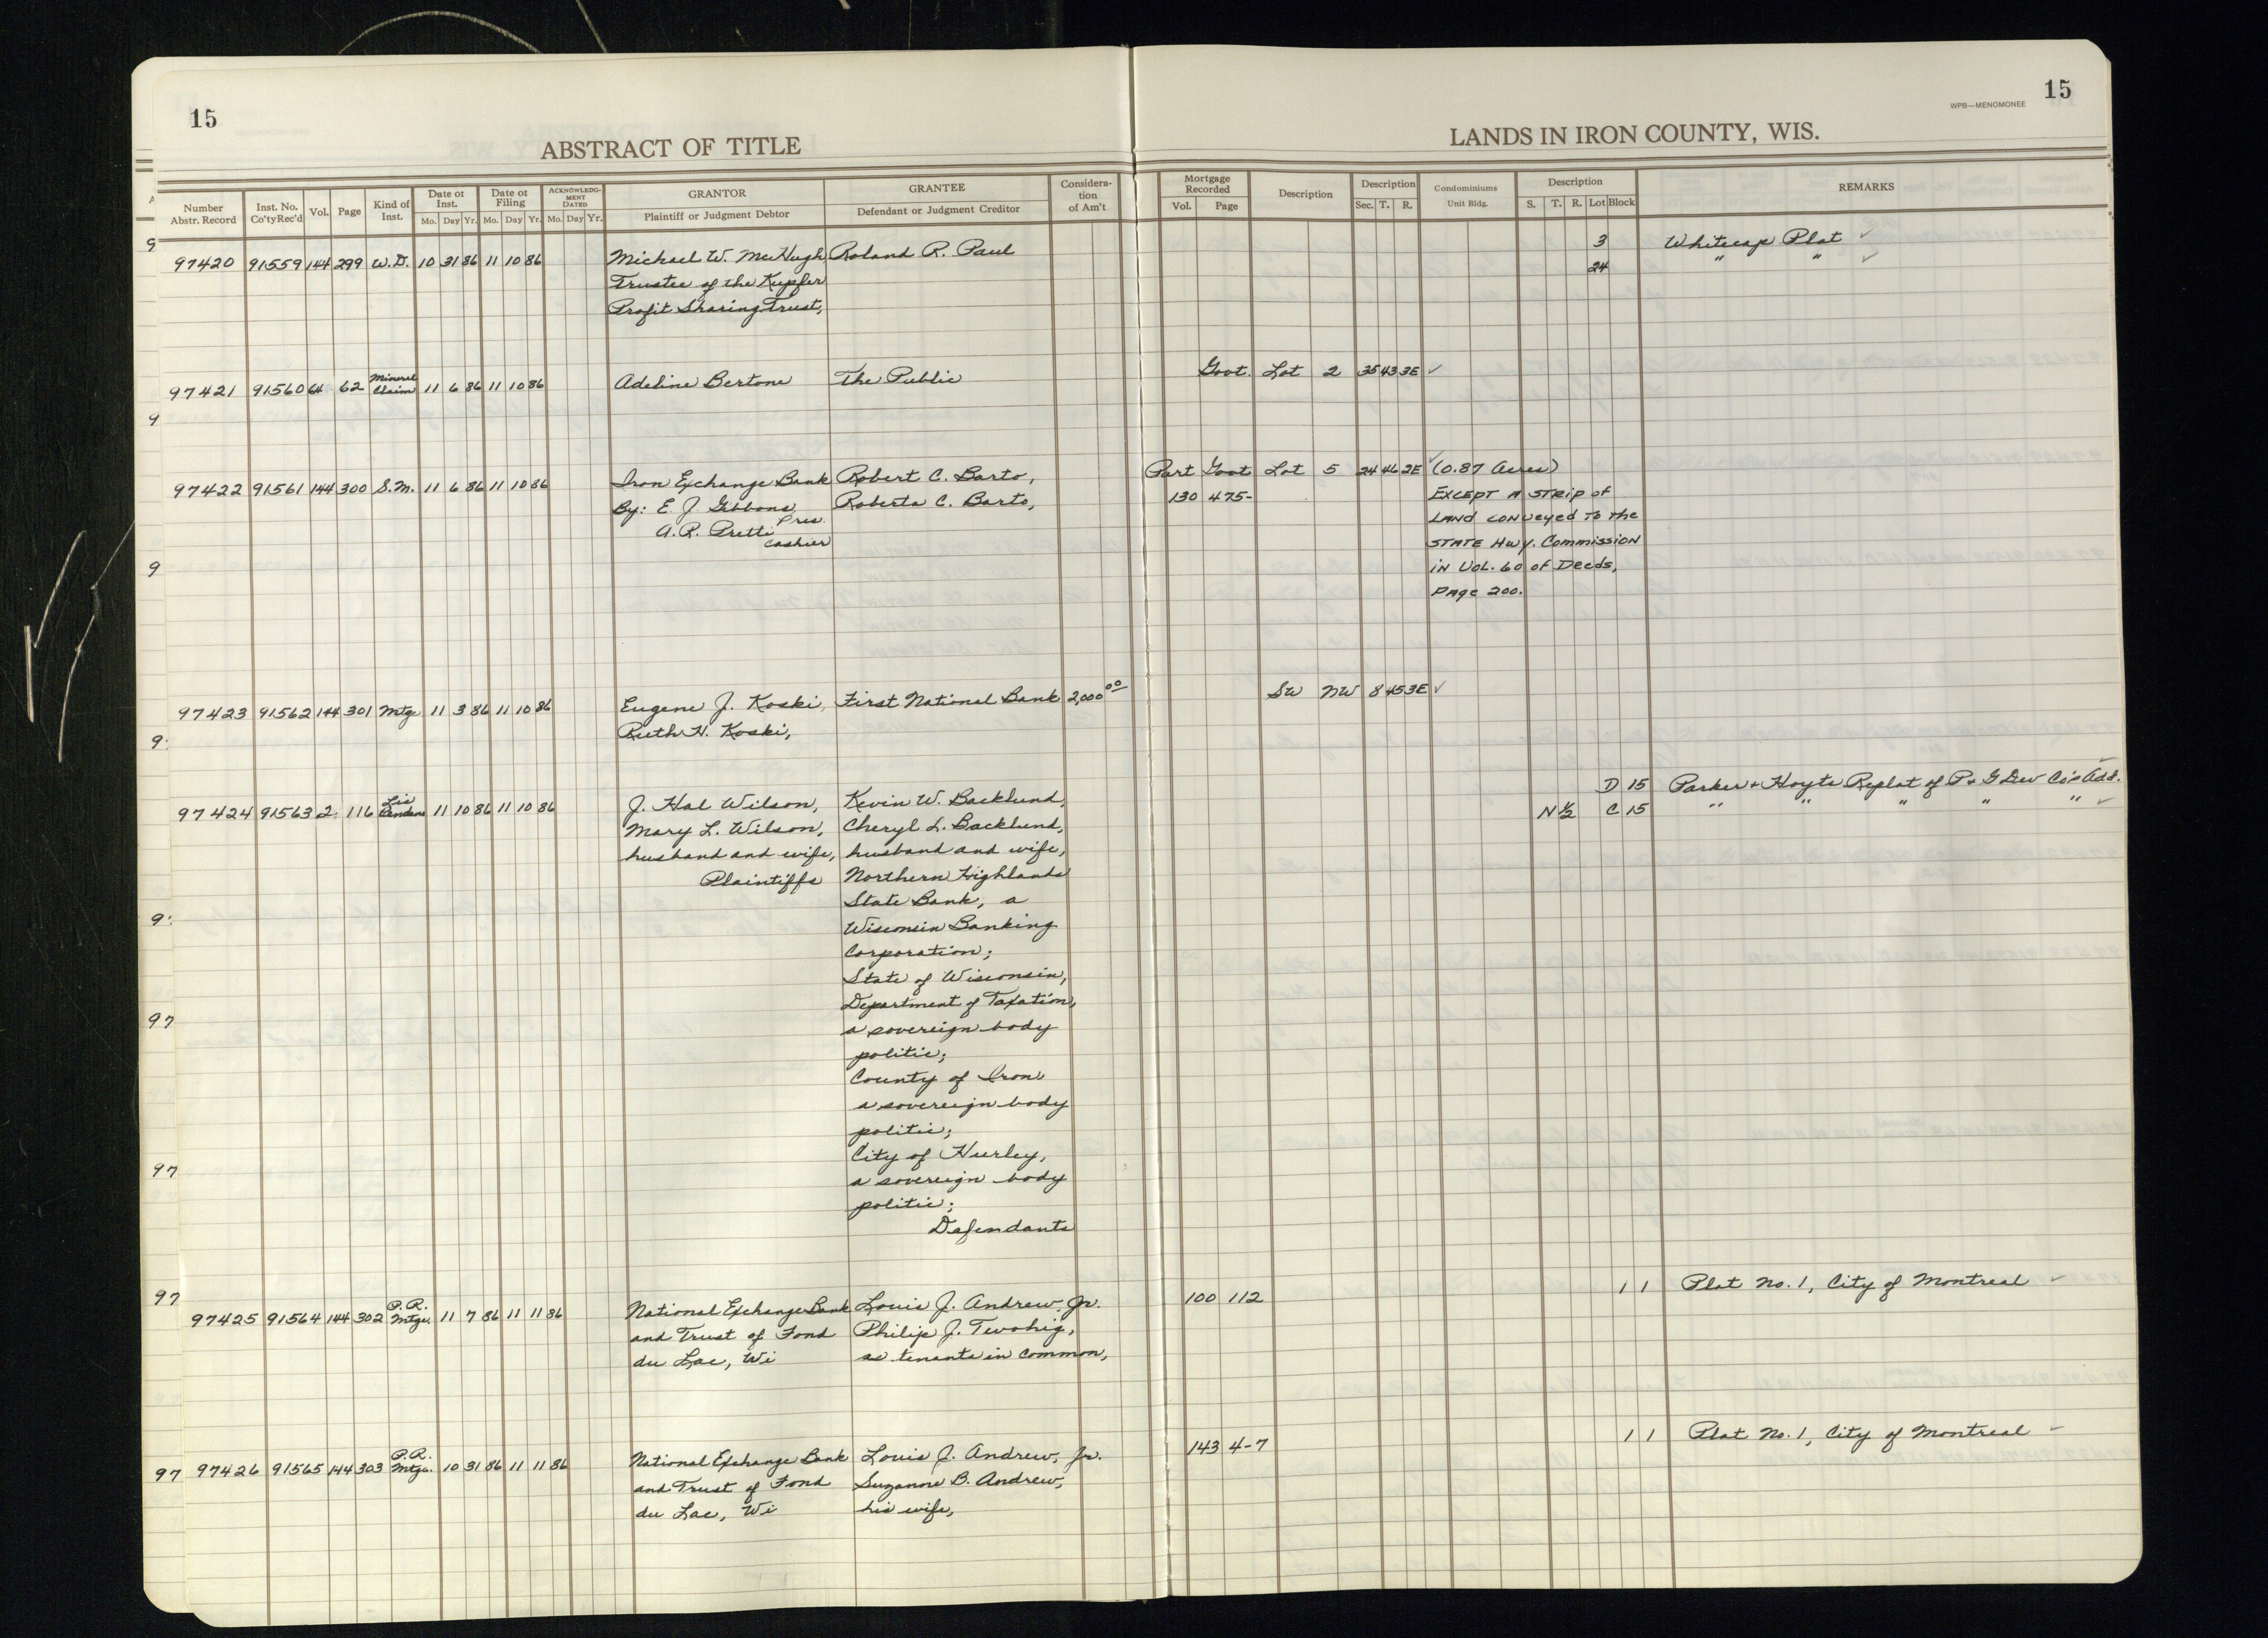 15
ABSTRACT OF TITLE
WPB—MENOMONEE
15
LANDS IN IRON COUNTY, WIS.
Number Abstr. Record
Inst. No. Co'ty Rec'd
Vol.
Page
Kind of Inst.
Date of Inst. Mo. Day Yr.
Date of Filing Mo. Day Yr.
ACKNOWLEDGMENT DATED Mo. Day Yr.
GRANTOR Plaintiff or Judgment Debtor
GRANTEE Defendant or Judgment Creditor
Considera-tion of Am't
Mortgage Recorded Vol. Page
Description
Description Sec. T. R.
Condominiums Unit Bldg.
Description S. T. R. Lot Block
REMARKS
97420 91559 144 299 W.D. 10 31 86 11 10 86 Michael W. McHugh Roland R. Paul 3 Whitecap Plat ✓
Trustee of the Kupfer 24 " " ✓
Profit Sharing Trust,
97421 91560 64 62 Mineral Claim 11 6 86 11 10 86 Adeline Bertone The Public Govt. Lot 2 35 43 3E ✓
97422 91561 144 300 S.M. 11 6 86 11 10 86 Iron Exchange Bank Robert C. Barto, Part Govt Lot 5 24 46 2E ✓ (0.87 Acres)
By: E. J. Gibbons, Pres. Roberta C. Barto, 130 475- EXCEPT A STRIP OF
A. R. Pretti Cashier LAND CONVEYED TO THE
STATE HWY. COMMISSION
IN VOL. 60 OF DEEDS,
PAGE 200.
97423 91562 144 301 Mtge 11 3 86 11 10 86 Eugene J. Koski, First National Bank 2,000 00 SW NW 8 45 3E ✓
Ruth H. Koski,
97424 91563 2 116 Lis Pendens 11 10 86 11 10 86 J. Hal Wilson, Kevin W. Backlund, D 15 Parker & Hoyts Replat of P & G Dev Co's Add. ✓
Mary L. Wilson, Cheryl L. Backlund, N½ C 15 " " " " " ✓
husband and wife, husband and wife,
Plaintiffs Northern Highlands
State Bank, a
Wisconsin Banking
Corporation;
State of Wisconsin,
Department of Taxation,
a sovereign body
politic;
County of Iron
a sovereign body
politic;
City of Hurley,
a sovereign body
politic;
Defendants
97425 91564 144 302 P.R. Mtge. 11 7 86 11 11 86 National Exchange Bank Louis J. Andrew, Jr. 100 112 1 1 Plat No. 1, City of Montreal ✓
and Trust of Fond Philip J. Twohig,
du Lac, Wi as tenants in common,
97426 91565 144 303 P.R. Mtge. 10 31 86 11 11 86 National Exchange Bank Louis J. Andrew, Jr. 143 4-7 1 1 Plat No. 1, City of Montreal ✓
and Trust of Fond Suzanne B. Andrew,
du Lac, Wi his wife,